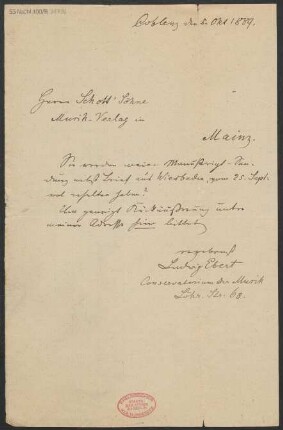 Coblenz den 5. Okt 1889.
Herrn Schott' Söhne
Musik-Verlag in
Mainz.
Sie werden meine Manuskript-Sen-
dung nebst Brief aus Wiesbaden vom 25. Sept.
wol erhalten haben?
Um geneigte Rückäußerung unter
meiner Adresse hier bittet
ergebenst
Ludwig Ebert
Conservatorium der Musik
Löhr. Str. 68.